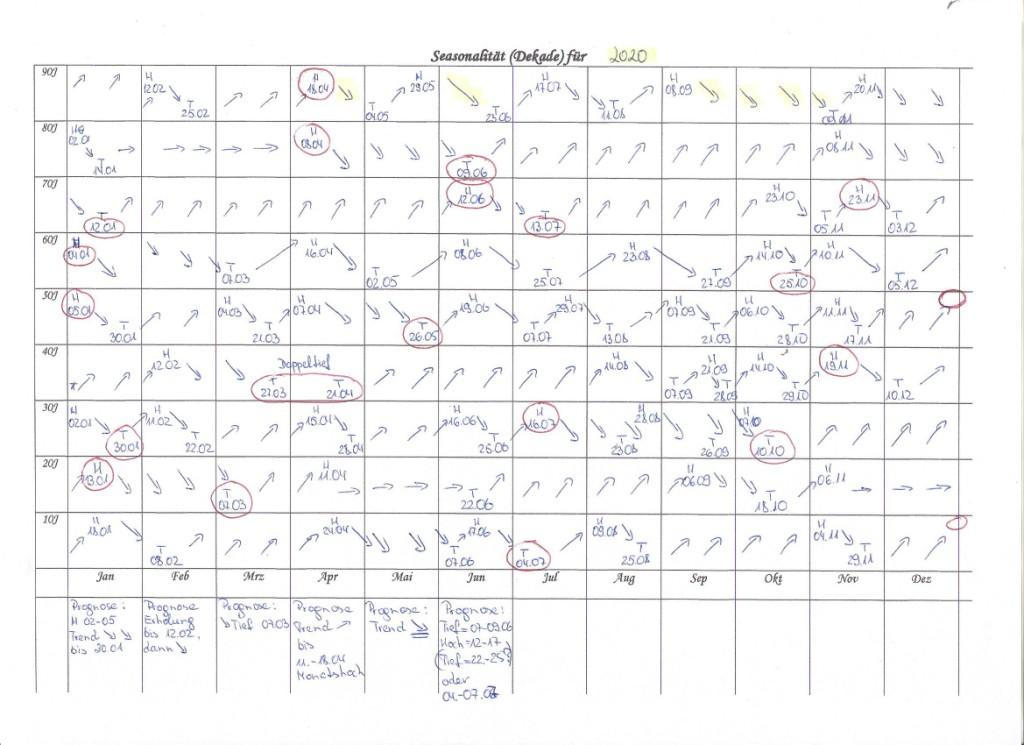 Seasonalität (Dekade) für 2020
90J H 12.02 T 25.02 H 18.04 T 04.05 H 29.05 T 23.06 H 17.07 T 11.08 H 08.09 T H 20.11
80J 02.01 T H 08.04 T 09.06 H 08.11
70J T 12.01 H 12.06 T 13.07 H 23.10 T 05.11 H 23.11 T 03.12
60J H 04.01 T 07.03 H 16.04 T 02.05 H 08.06 T 25.07 H 23.08 T 27.09 H 14.10 T 25.10 H 10.11 T 05.12
50J H 05.01 T 30.01 H 04.03 T 21.03 H 07.04 T 26.05 H 19.06 T 07.07 H 29.07 T 13.08 H 07.09 T 21.09 H 06.10 T 28.10 H 11.11 T 17.11
40J H 12.02 Doppeltief T 27.03 T 21.04 H 14.08 T 07.09 H 21.09 T 28.09 H 14.10 T 29.10 H 19.11 T 10.12
30J H 02.01 T 30.01 H 11.02 T 22.02 H 15.04 T 28.04 H 16.06 T 25.06 H 16.07 T 23.08 H 28.08 T 26.09 H 07.10 T 10.10
20J H 13.01 T 07.03 H 11.04 T 22.06 H 06.09 T 18.10 H 06.11
10J H 18.01 T 08.02 H 24.04 T 07.06 H 17.06 T 04.07 H 09.08 T 25.08 H 04.11 T 29.11
Jan Feb Mrz Apr Mai Jun Jul Aug Sep Okt Nov Dez
Prognose:
H 02-05
Trend ↘ ↘
bis 30.01
Prognose
Erholung
bis 12.02,
dann ↘
Prognose:
↘ Tief 07.03
Prognose
Trend ↗
bis
11.-18.04
Monatshoch
Prognose:
Trend ↘
Prognose:
Tief=07-09.06
Hoch=12-17
(Tief=22.-25?)
oder
04-07.07